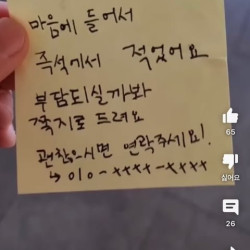 마음에 들어서
즉석에서 적었어요
부담되실까봐
쪽지로 드려요
괜찮으시면 연락주세요!
↳ 010-xxxx-xxxx
싫어요
26